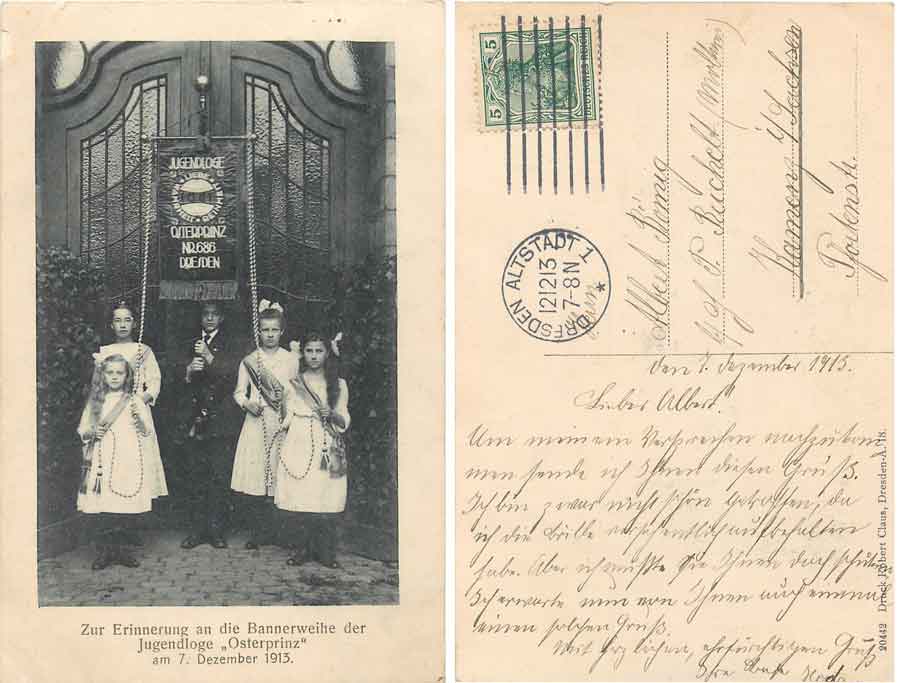 JUGENDLOGE
OSTERPRINZ
NR. 686
DRESDEN
Zur Erinnerung an die Bannerweihe der
Jugendloge „Osterprinz“
am 7. Dezember 1913.
5
5
DEUTSCHES REICH
DRESDEN ALTSTADT 1
12 12 13
7-8 N
*
Albert König
Kamenz i/Sachsen
den 7. Dezember 1913.
Lieber Albert!
Um meinem Versprechen nachzukom
men sende ich Ihnen diesen Gruß.
Ich bin zwar nicht schön getroffen, da
ich die Brille versehentlich aufbehalten
habe. Aber ich mußte sie Ihnen doch
Ich erwarte nun von Ihnen auch einmal
einen solchen Gruß.
Mit herzlichem, ehrfürchtigen Gruß
Ihre
20442 Druck Robert Claus, Dresden-A. 18.